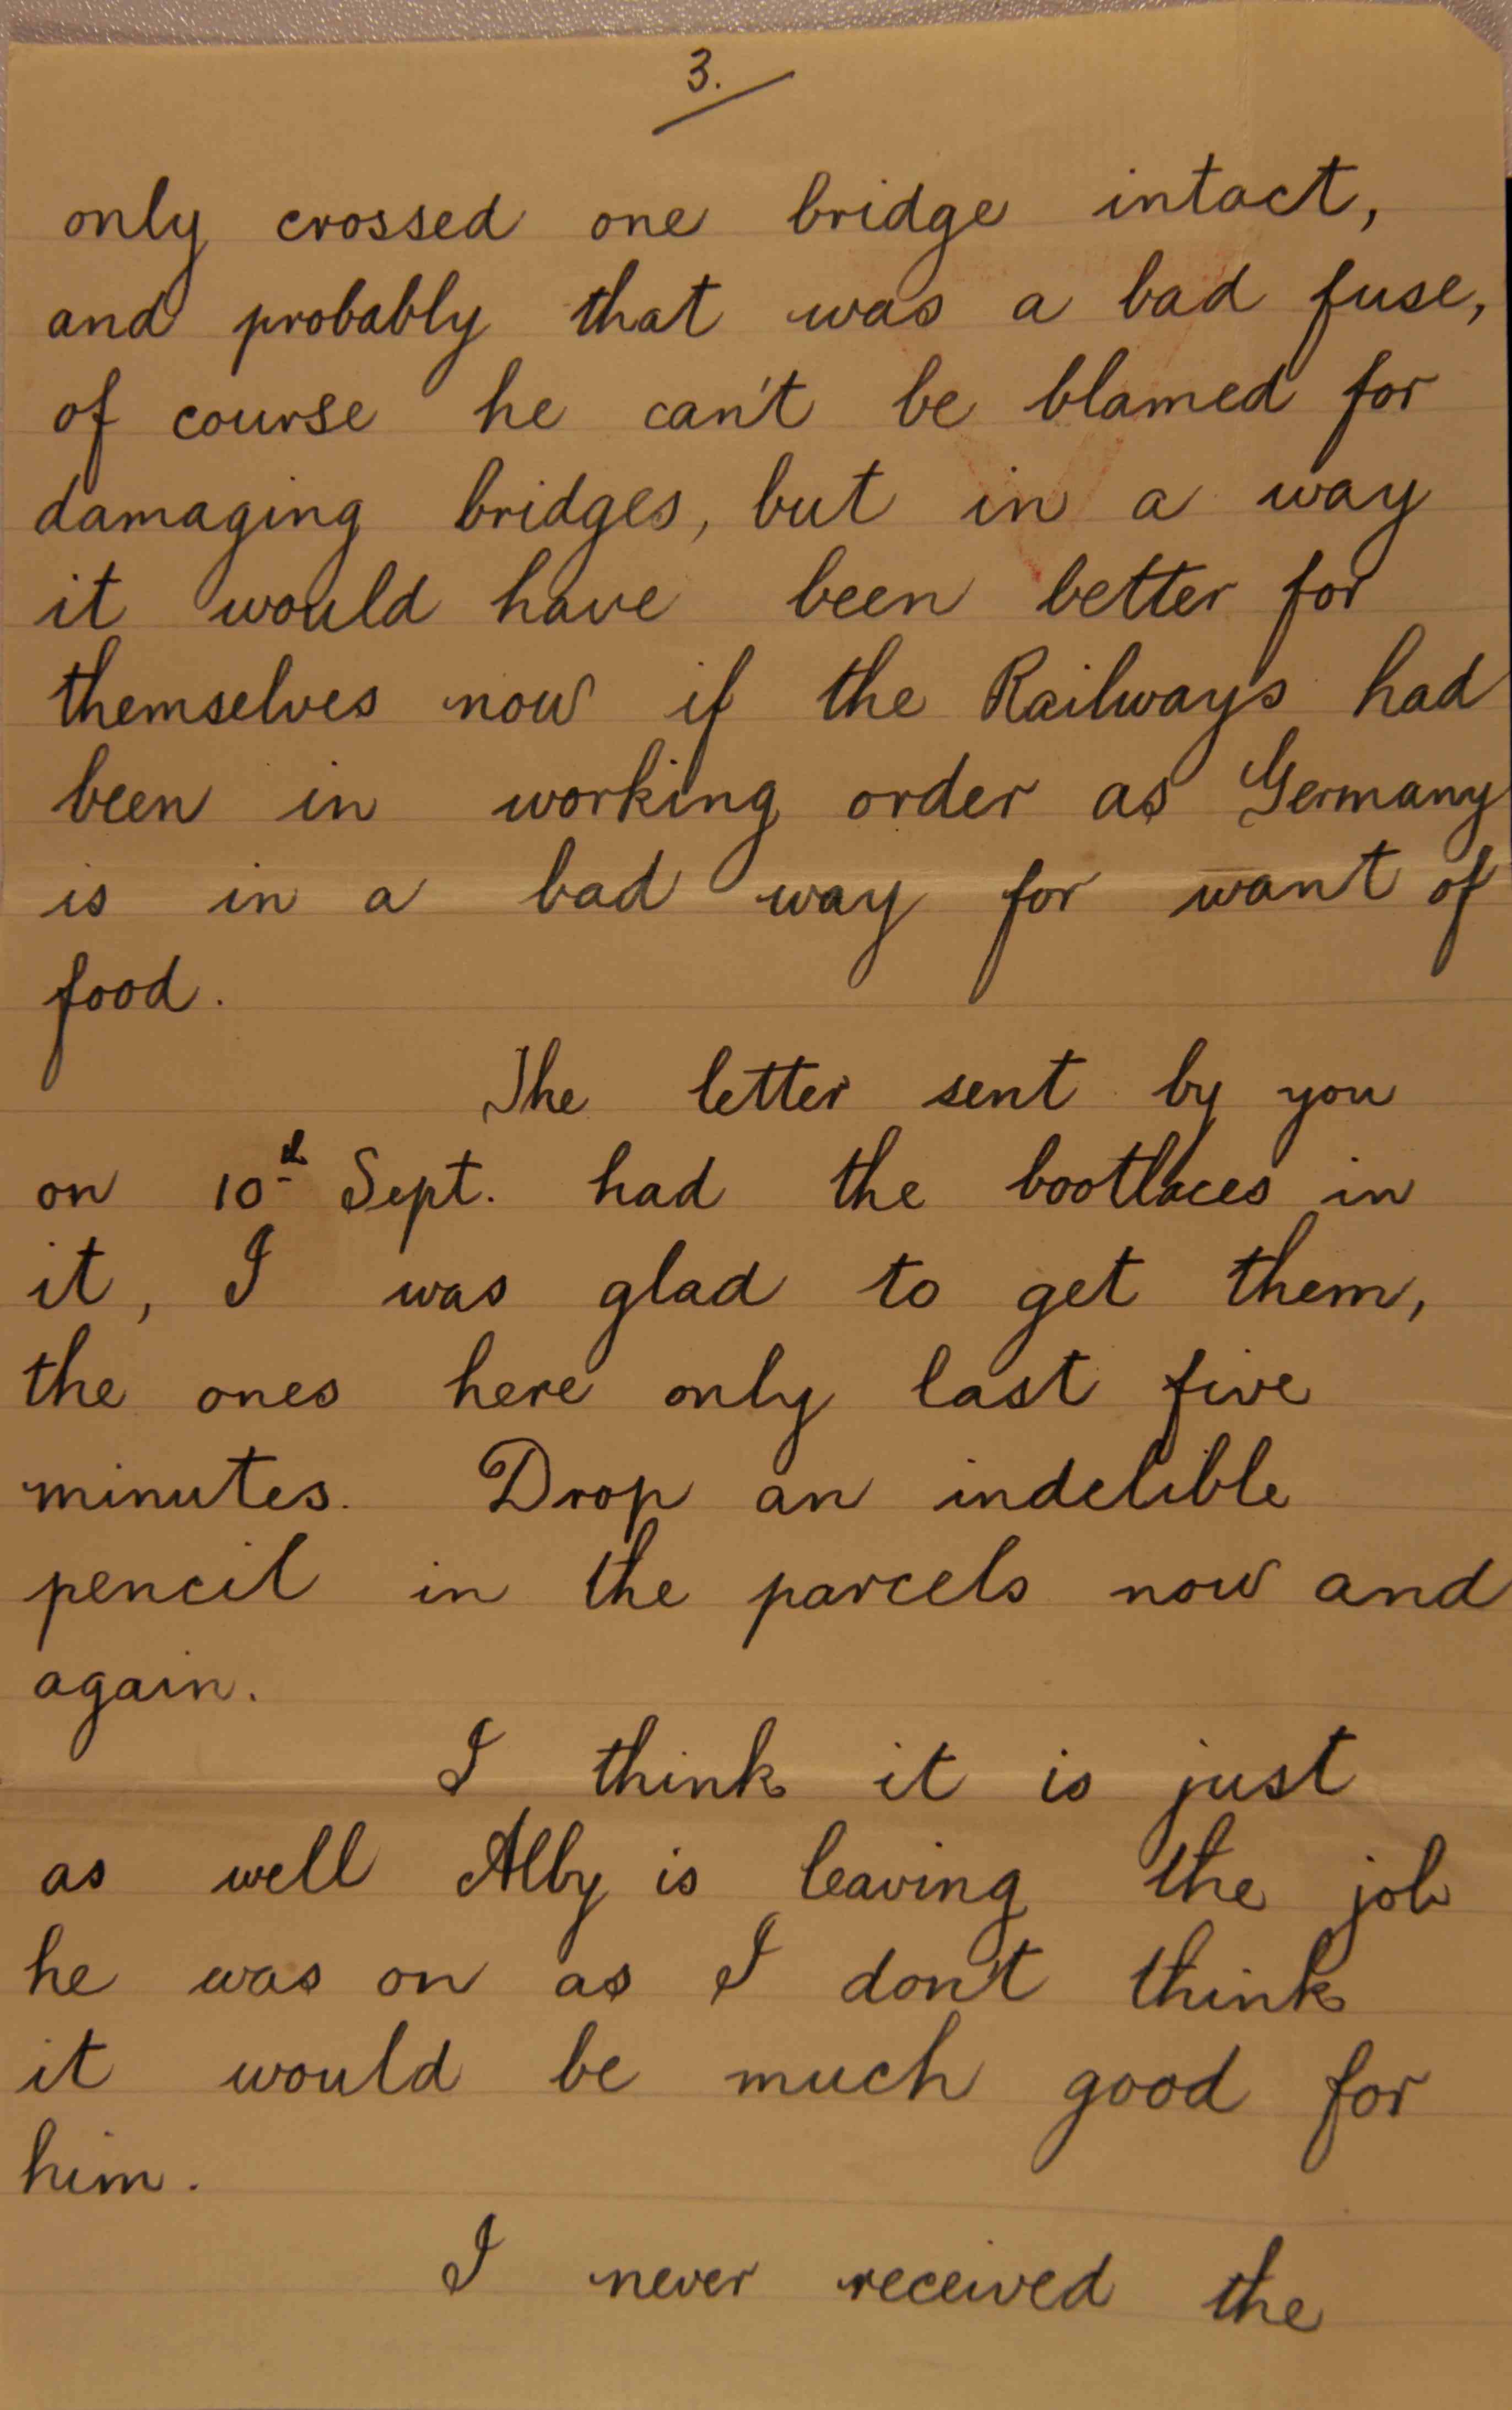 3.
only crossed one bridge intact,
and probably that was a bad fuse,
of course he can't be blamed for
damaging bridges, but in a way
it would have been better for
themselves now if the Railways had
been in working order as Germany
is in a bad way for want of
food.
The letter sent by you
on 10th Sept. had the bootlaces in
it, I was glad to get them,
the ones here only last five
minutes. Drop an indelible
pencil in the parcels now and
again.
I think it is just
as well Alby is leaving the job
he was on as I don't think
it would be much good for
him.
I never received the